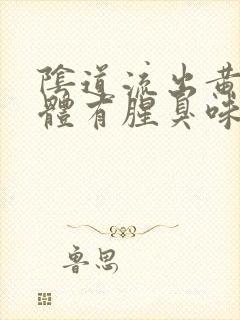 陰道流出黃
體有腥臭味
魯思